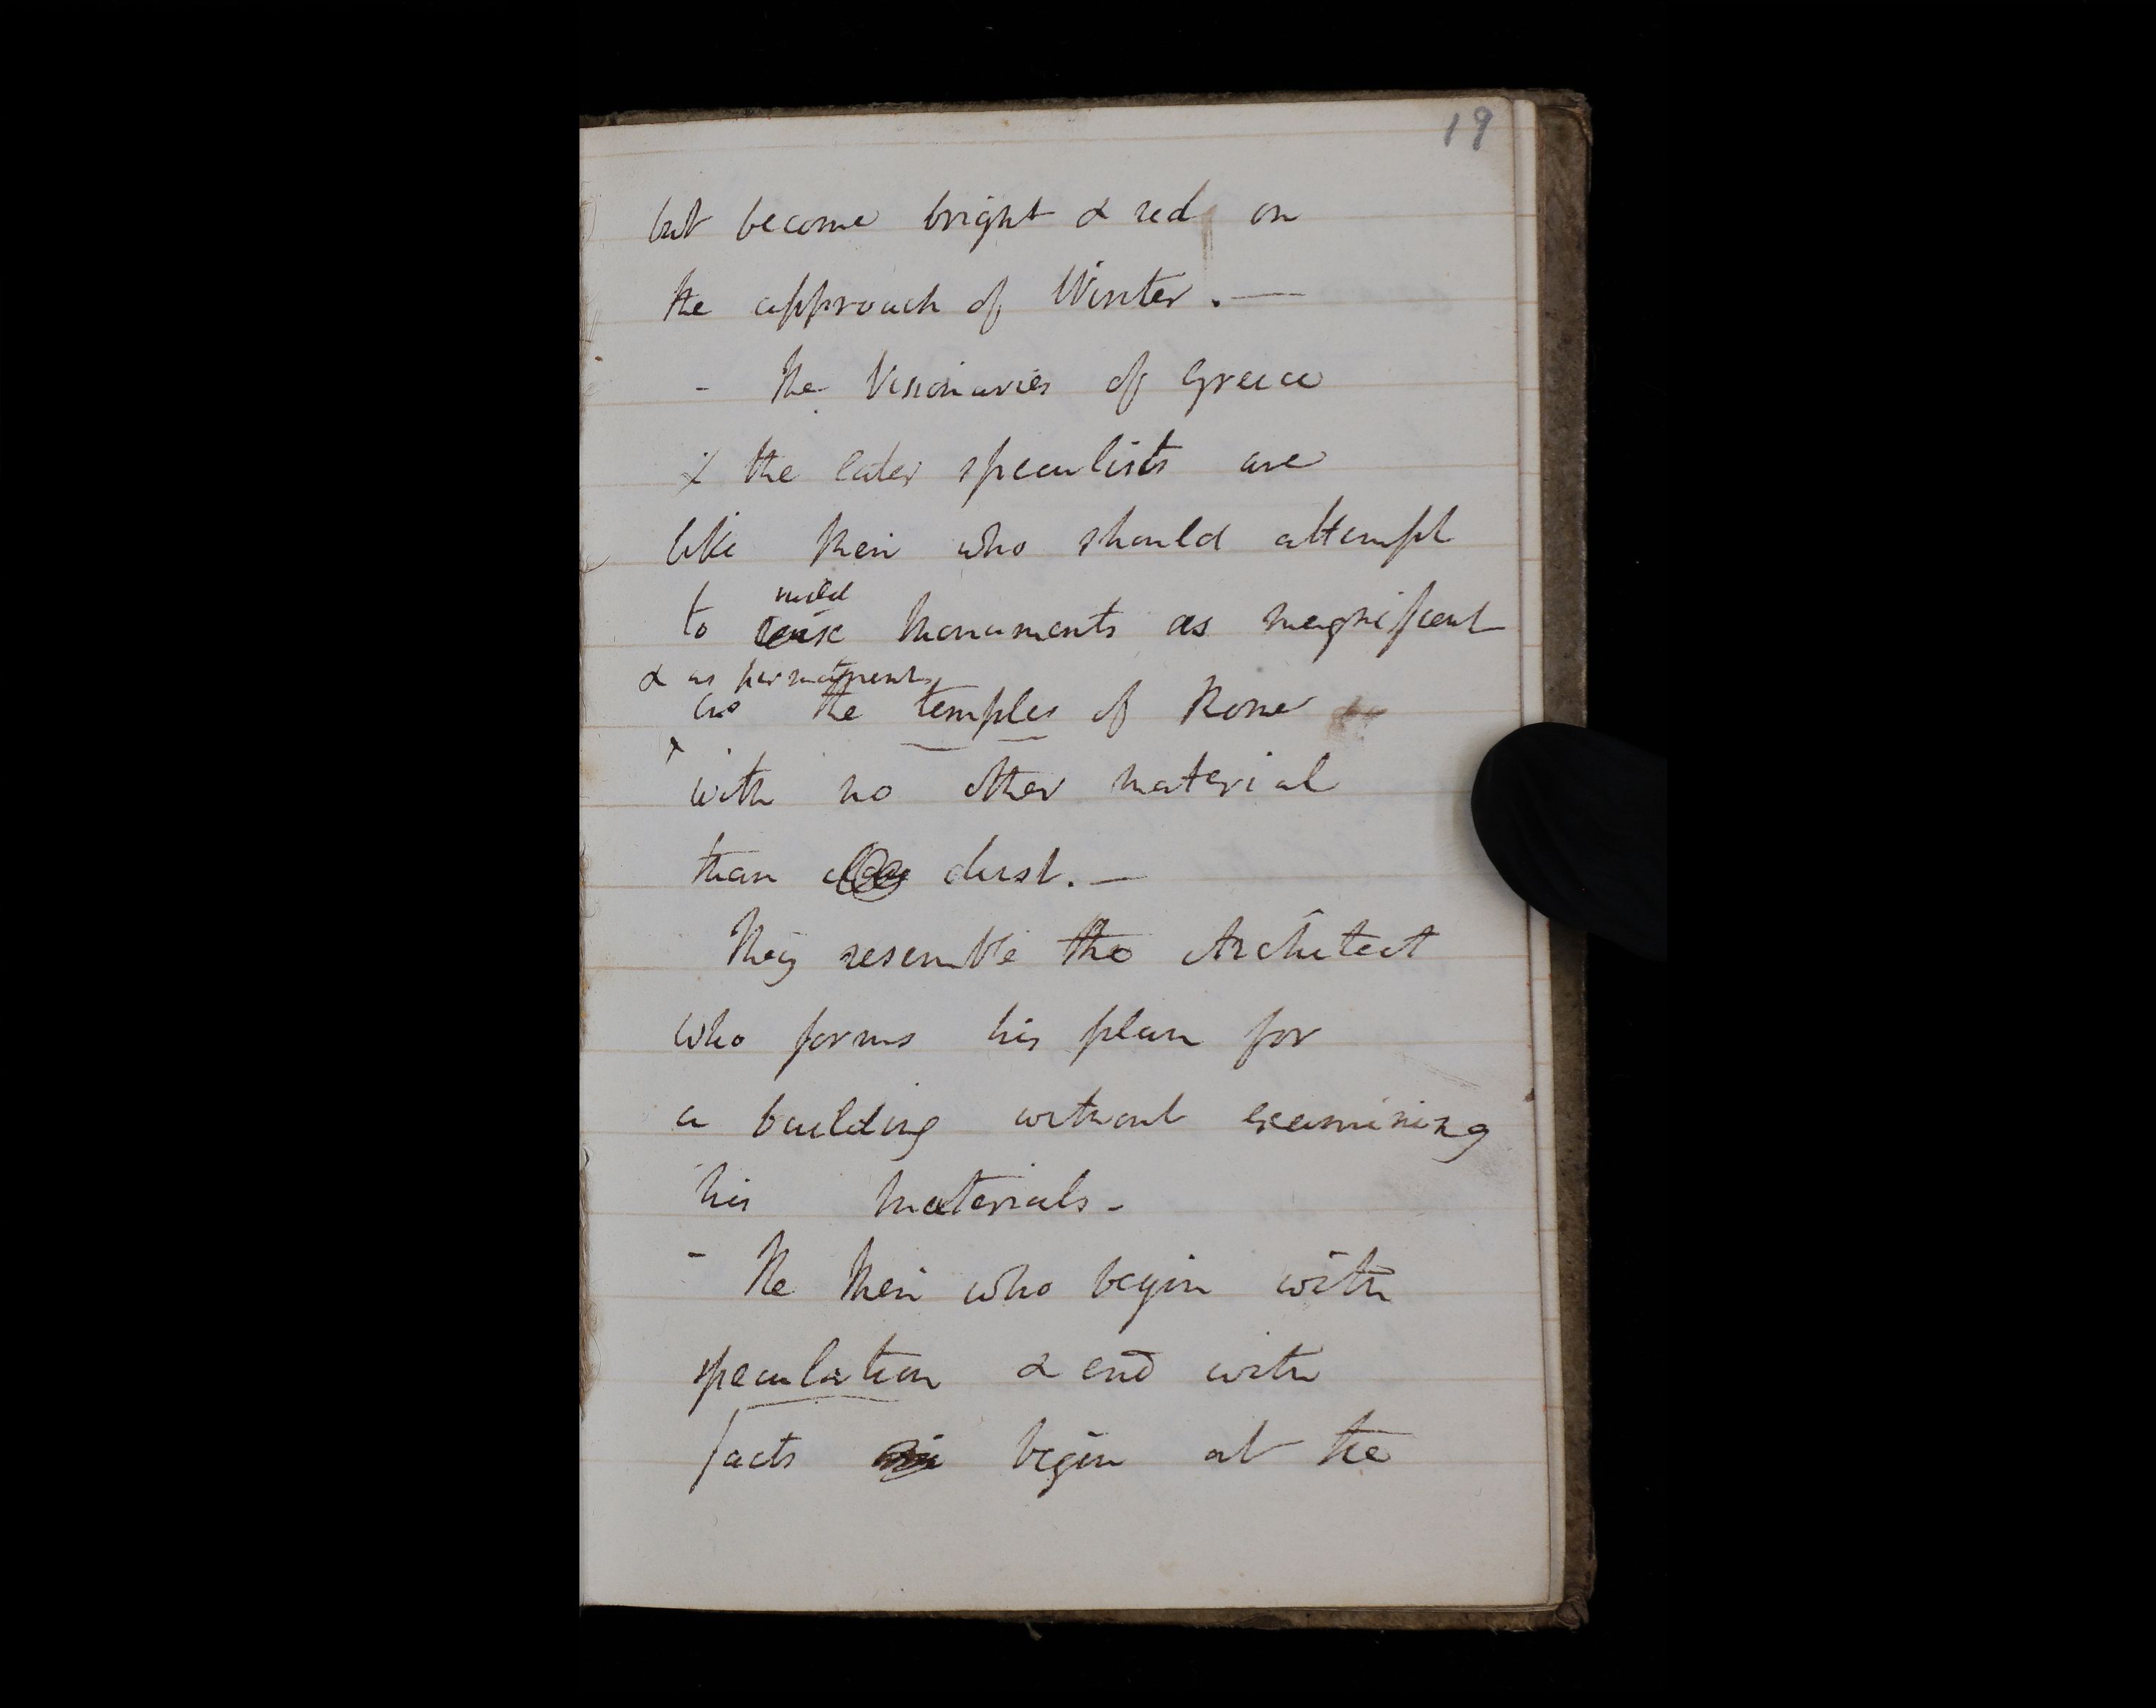 19
but become bright & red on
the approach of Winter. —
- The Visionaries of Greece
& the later speculists are
like Men who should attempt
to raise Monuments as magnificent
& as permanent
as the temples of Rome
with no other material
than clay dust. —
They resemble the Architect
who forms his plan for
a building without examining
his Materials -
- The Men who begin with
speculation & end with
facts begin at the